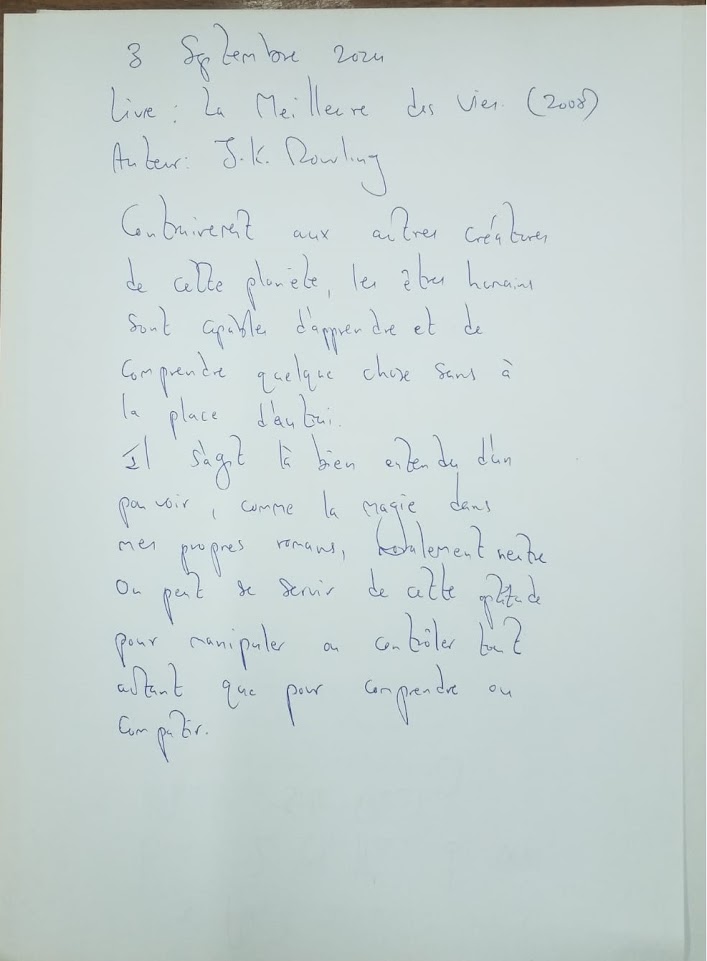 3 Septembre 2024
Livre : La Meilleure des vies (2008)
Auteur : J.K. Rowling
Contrairement aux autres créatures
de cette planète, les êtres humains
sont capables d'apprendre et de
comprendre quelque chose sans à
la place d'autrui.
Il s'agit là bien entendu d'un
pouvoir, comme la magie dans
mes propres romans, totalement neutre
On peut se servir de cette aptitude
pour manipuler ou contrôler tout
autant que pour comprendre ou
compatir.